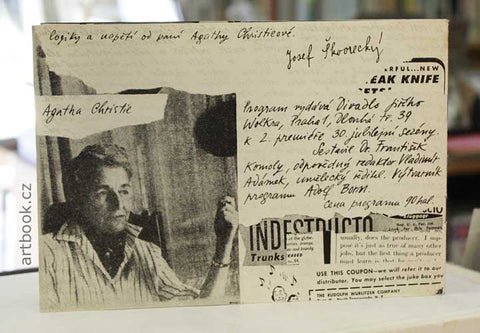 logiky a napětí od paní Agathy Christieové.
Josef Škvorecký
Agatha Christie
Program vydává Divadlo Jiřího
Wolkra, Praha 1, Dlouhá tř. 39
k 2. premiéře 30. jubilejní sezóny.
Sestavil Dr František
Komoly, odpovědný redaktor Vladimír
Adámek, umělecký ředitel. Výtvarník
programu Adolf Born.
Cena programu 90 hal.
RFUL...NEW
EAK KNIFE
INDESTRUCTO
Trunks
luggage
usually, does the producer. I sup-
pose it's just as true of many other
jobs, but the first thing a producer
must learn is
USE THIS COUPON—we will refer it to our
distributor. You may select the juke box you
THE RUDOLPH WURLITZER COMPANY
artbook.cz